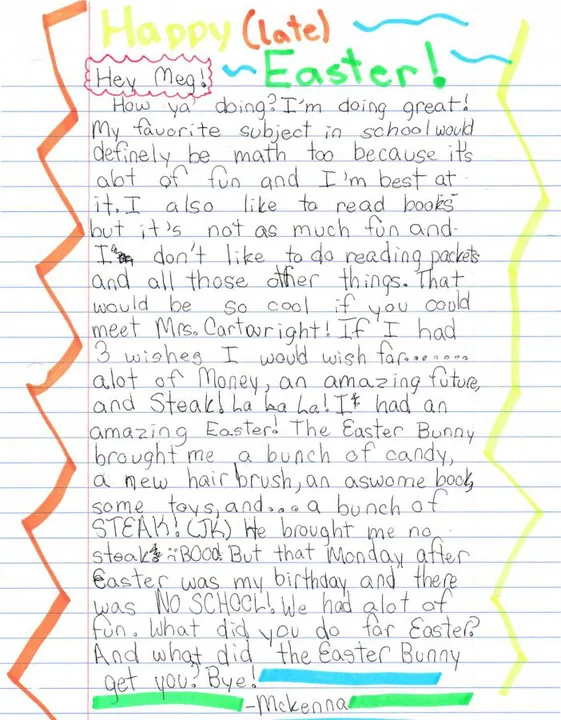 Happy (late)
Easter!
Hey Meg!
How ya' doing? I'm doing great!
My favorite subject in school would
definely be math too because it's
alot of fun and I'm best at
it. I also like to read books
but it's not as much fun and
I don't like to do reading packets
and all those other things. That
would be so cool if you could
meet Mrs. Cartwright! If I had
3 wishes I would wish for........
alot of Money, an amazing future,
and Steak! La La La! I had an
amazing Easter! The Easter Bunny
brought me a bunch of candy,
a new hair brush, an aswome book,
some toys, and... a bunch of
STEAK! (JK) He brought me no
steak :( BOOO! But that Monday after
Easter was my birthday and there
was NO SCHOOL! We had alot of
fun. What did you do for Easter?
And what did the Easter Bunny
get you? Bye!
-Mckenna